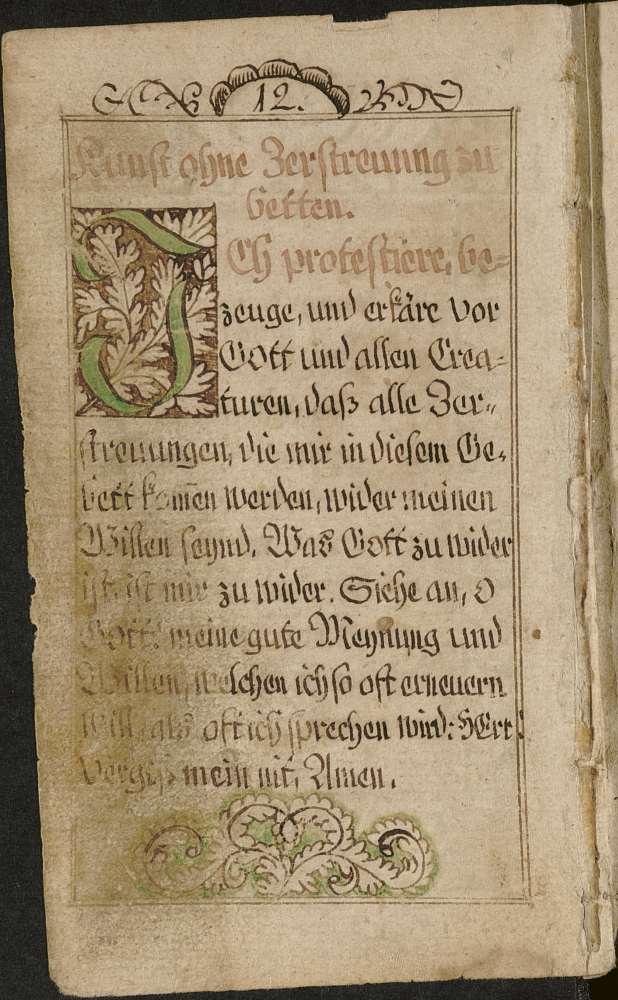 12.
Kunst ohne Zerstreuung zu
betten.
ICh protestiere, be=
zeuge, und erkäre vor
GOtt und allen Crea=
turen, daß alle Zer=
streuungen, die mir in diesem Ge=
bett kom̄en werden, wider meinen
Willen seynd. Was Gott zu wider
ist, ist mir zu wider. Siehe an, O
GOtt! meine gute Meynung und
Willen, welchen ich so oft erneuern
will, als oft ich sprechen wird: HErr!
Vergiß mein nit, Amen.